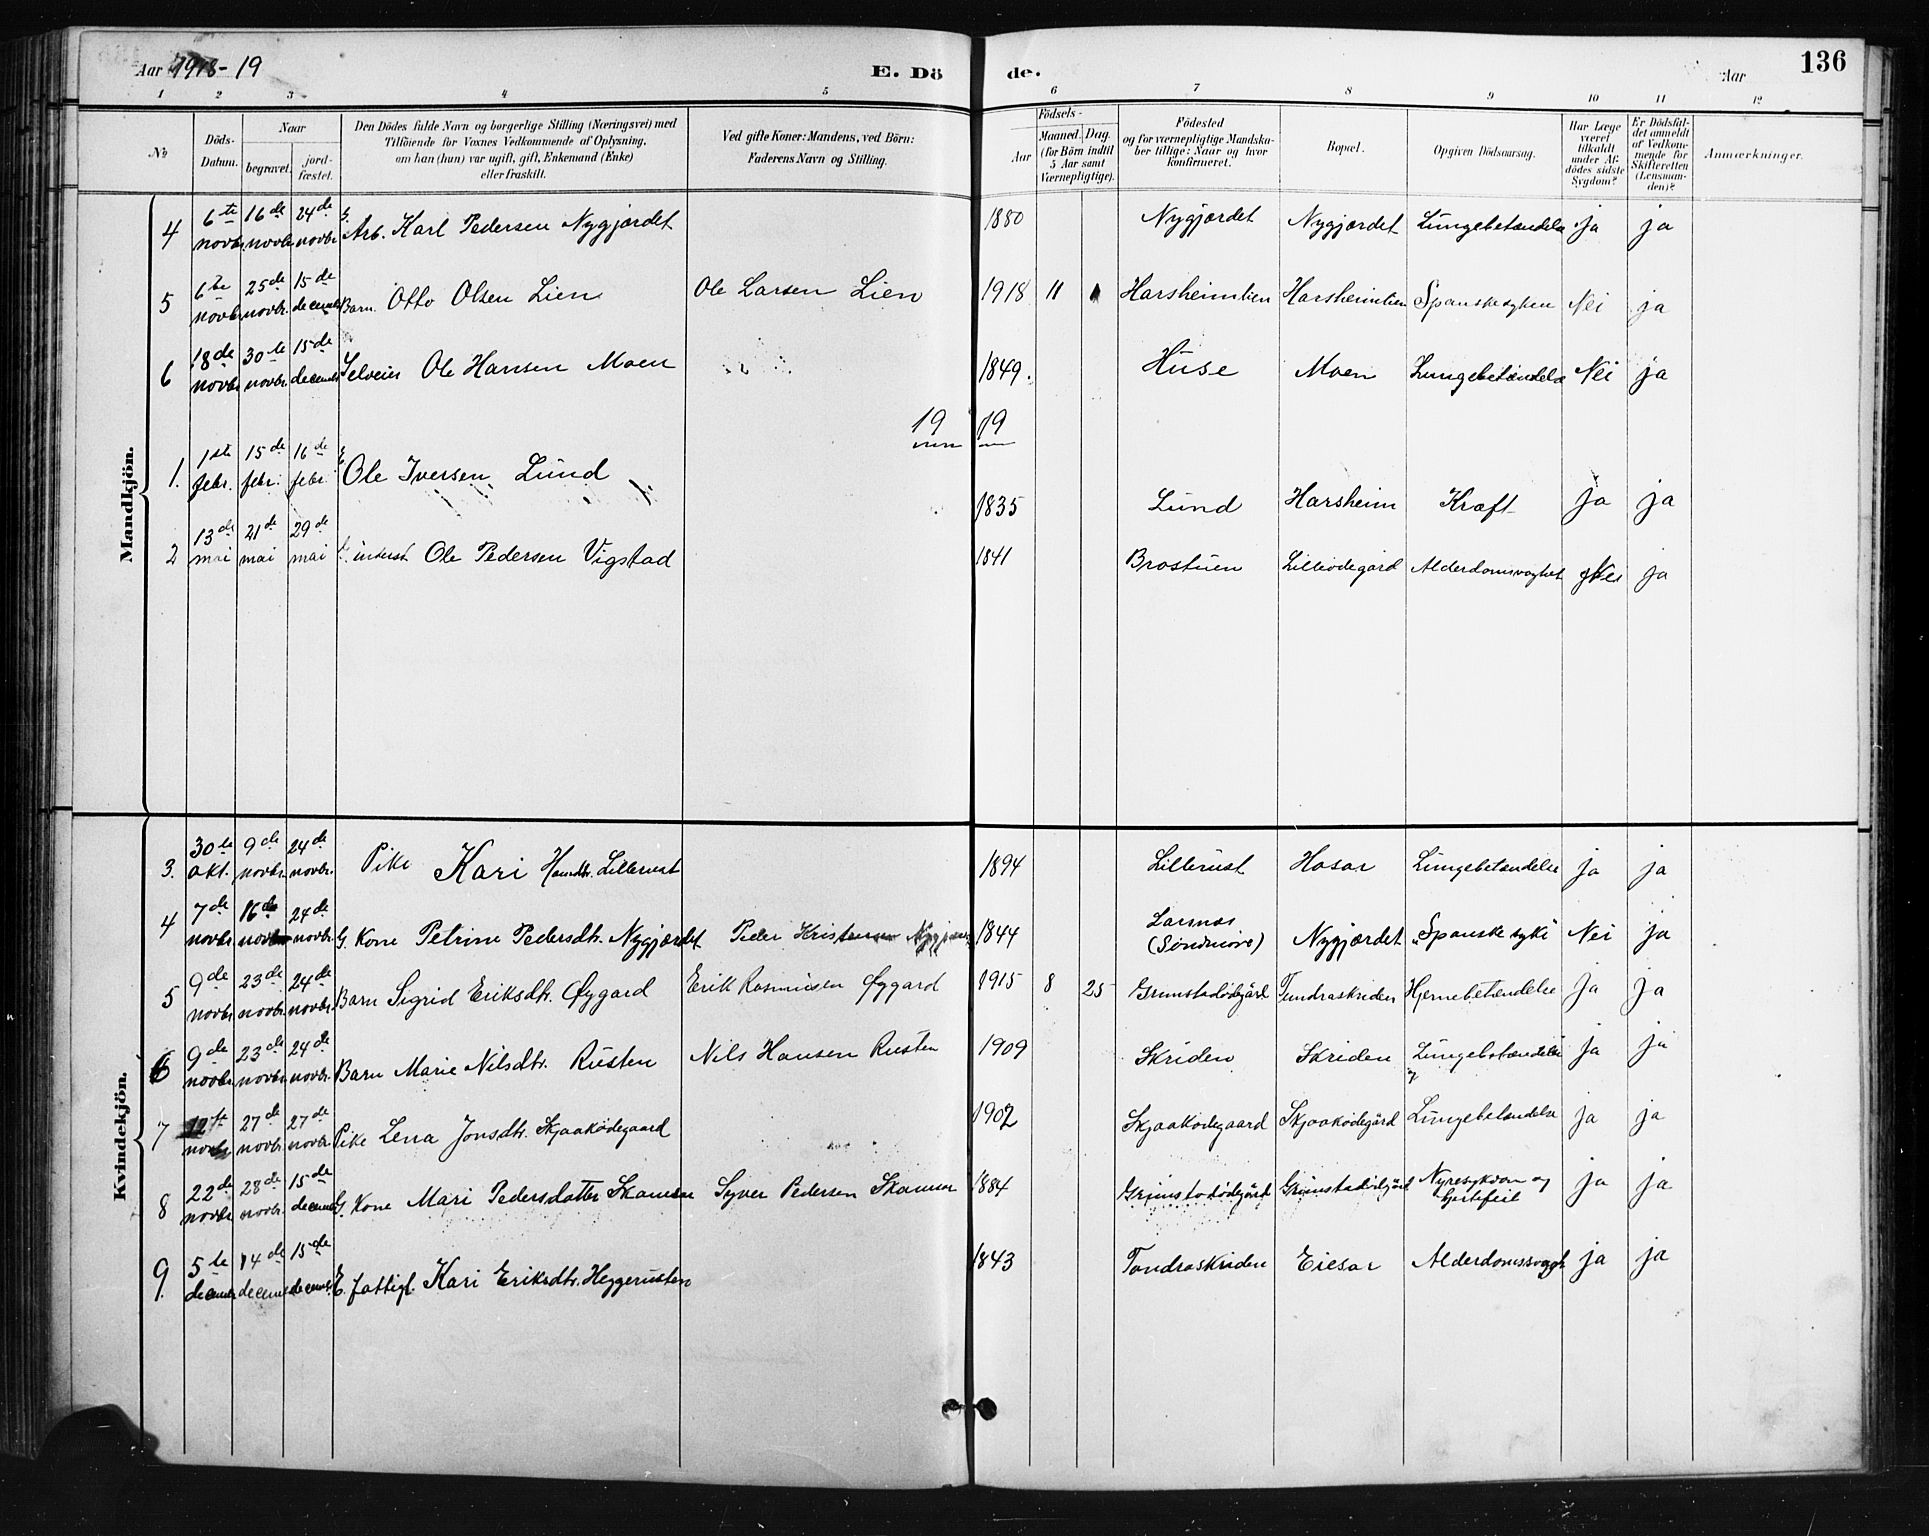 Aar 1918-19 E. Dö de. Aar 136
1 2 3 4 5 6 7 8 9 10 11 12
No Döds-Datum. Naar begravet. jord-fæstet. Den Dödes fulde Navn og borgerlige Stilling (Næringsvei) med Tilföiende for Voxnes Vedkommende af Oplysning, om han (hun) var ugift, gift, Enkemand (Enke) eller fraskilt. Ved gifte Koner: Mandens, ved Börn: Faderens Navn og Stilling. Födsels- Aar Maaned. Dag. (for Börn indtil 5 Aar samt Værnepligtige). Födested og for værnepligtige Mandskaber tillige: Naar og hvor konfirmeret. Bopæl. Opgiven Dödsaarsag. Har Læge været tilkaldt under Afdödes sidste Sygdom? Er Dödsfaldet anmeldt af Vedkommende for Skifteretten (Lensmanden)? Anmærkninger.
Mandkjön.
4 6te novbr. 16de novbr. 24de novbr. G. Arb. Karl Pedersen Nygjærdet 1880 Nygjærdet Nygjærdet Lungebetændelse Ja ja
5 6te novbr. 25de novbr. 15de decembr. Barn. Otto Olsen Lien Ole Larsen Lien 1918 11 1 Harsheimlien Harsheimlien Spanskesyken Nei ja
6 18de novbr. 30te novbr. 15de decembr. Selveier Ole Hansen Moen 1849. Huse Moen Lungebetændelse Nei ja
19 19
1. 1ste febr. 15de febr. 16de febr. E. Ole Iversen Lund 1835 Lund Harsheim Kræft ja ja
2 13de mai 21de mai 29de mai G. inderst Ole Pedersen Vigstad 1841 Brostuen Lilleødegård Alderdomssvaghet Nei ja
Kvindekjön.
3. 30te okt. 9de novbr. 24de novbr. Pike Kari Hansdtr. Lillerust 1894 Lillerust Hosar Lungebetændelse ja ja
4 7de novbr. 16de novbr. 24de novbr. G. Kone Petrine Pedersdtr. Nygjærdet Peder Kristensen 1844 (Søndmøre) Nygjærdet "Spanske syke" Nei ja
5 9de novbr. 23de novbr. 24de novbr. Barn Sigrid Eriksdtr. Øygard Erik Rasmusen Øygard 1915 8 25 Grimstadødegård Tundraskriden Hjernebetændelse Ja ja
6 9de novbr. 23de novbr. 24de novbr. Barn Marie Nilsdtr. Rusten Nils Hansen Rusten 1909 Skriden Skriden Lungebetændelse Ja ja
7 12te novbr. 27de novbr. 27de novbr. Pike Lena Jonsdtr. Skjaakødegaard 1902 Skjaakødegaard Skjaakødegård Lungebetændelse ja ja
8 22de novbr. 28de novbr. 15de decembr. G. Kone Mari Pedersdatter Skamsar Syver Pedersen Skamsar 1884 Grimstadødegård Grimstadødegård Nyresykdom og hjertefeil ja ja
9. 5te decembr. 14de decembr. 15de decembr. E. fattigl. Kari Eriksdtr. Heggerusten 1843 Tandraskriden Eiesar Alderdomssvagh. ja ja